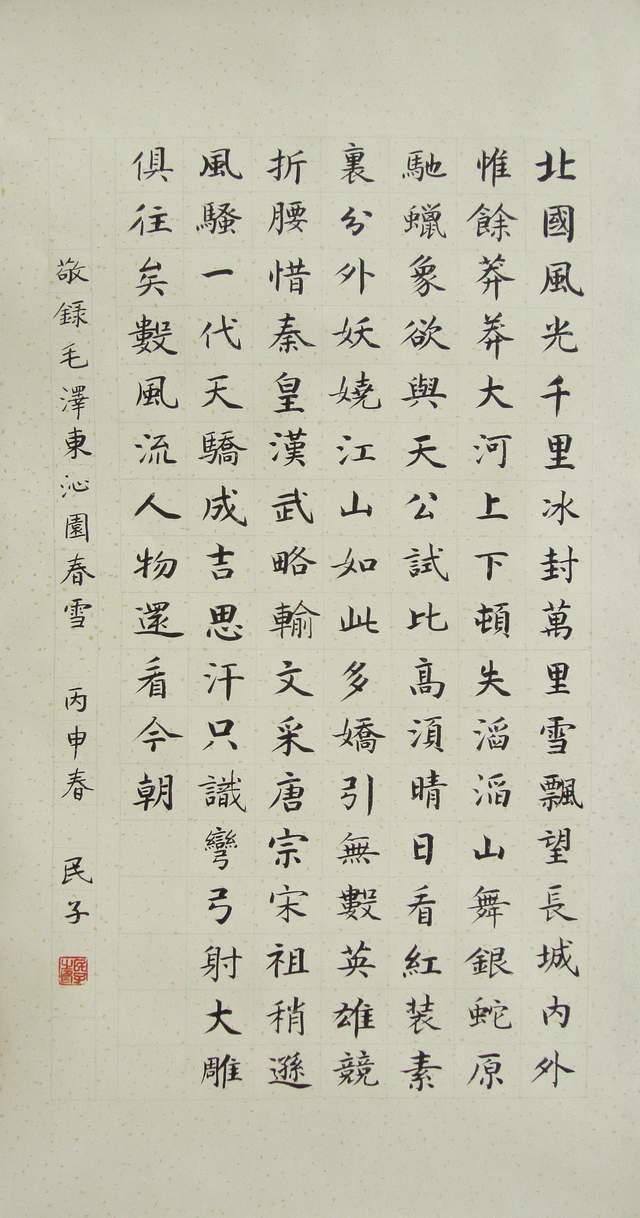 北國風光千里冰封萬里雪飄望長城内外
惟餘莽莽大河上下頓失滔滔山舞銀蛇原
馳蠟象欲與天公試比高須晴日看紅裝素
裏分外妖嬈江山如此多嬌引無數英雄競
折腰惜秦皇漢武略輸文采唐宗宋祖稍遜
風騷一代天驕成吉思汗只識彎弓射大雕
俱往矣數風流人物還看今朝
敬録毛澤東沁園春雪 丙申春 民子